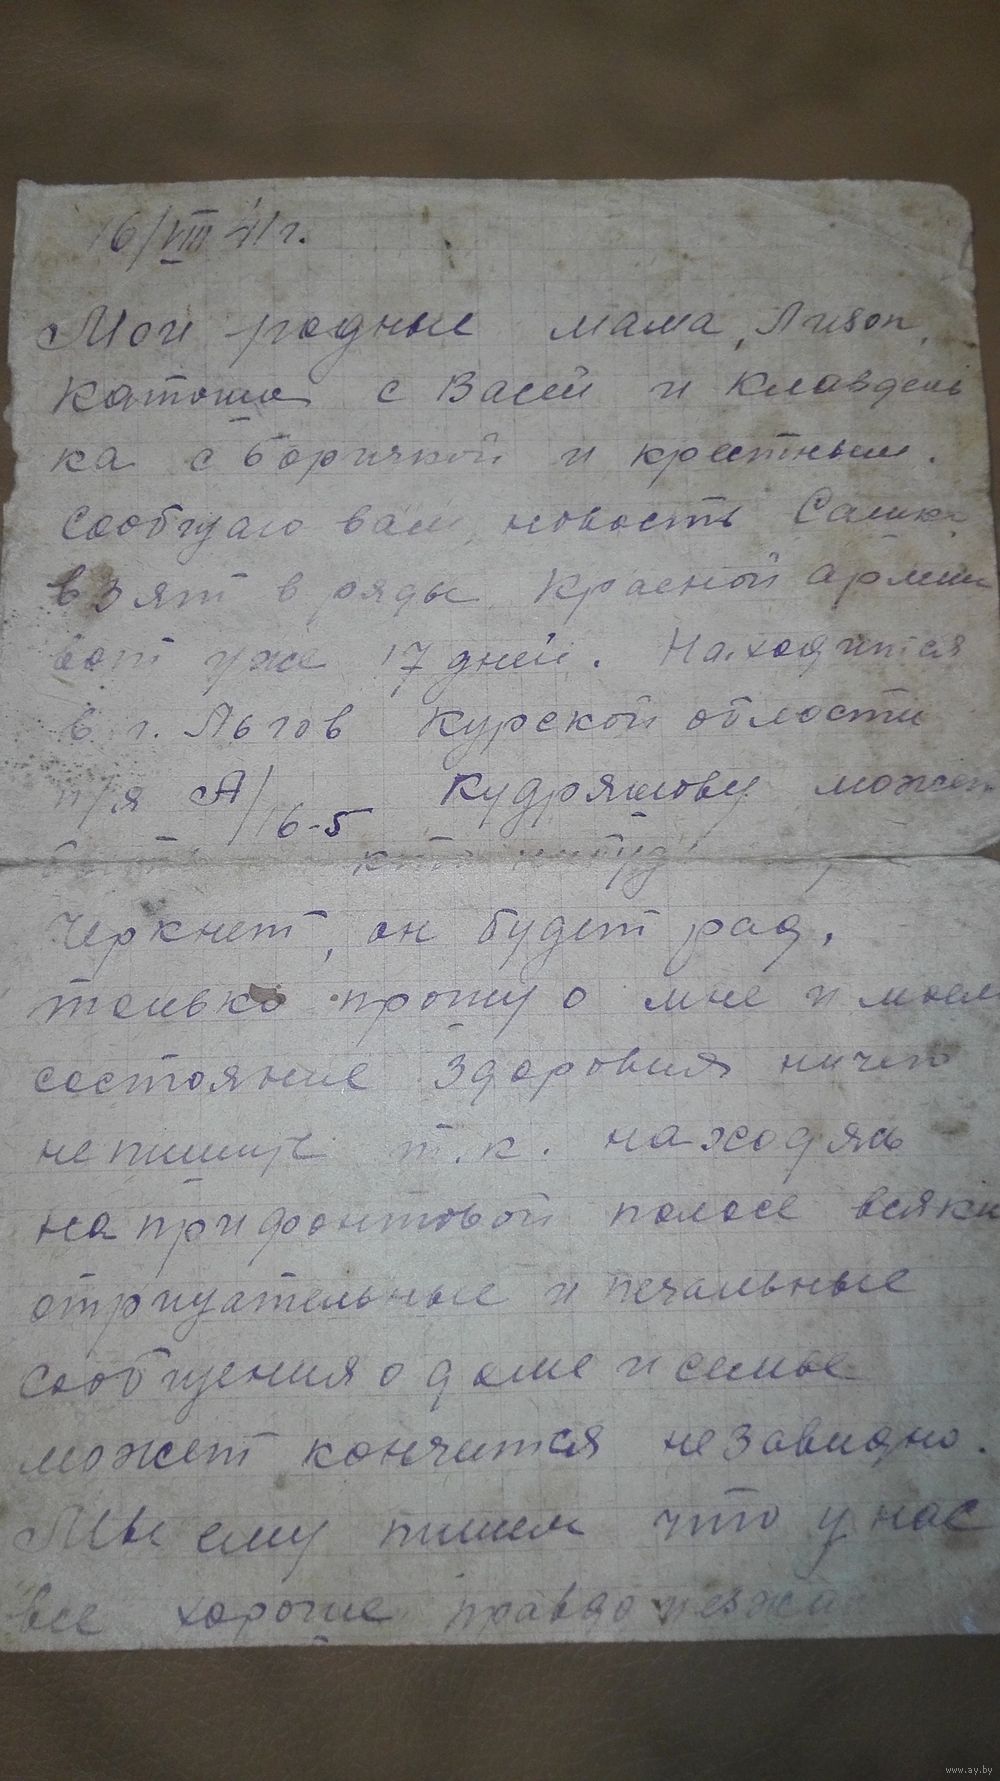 16/VIII 41 г.
Мои родные мама, Лизоп,
Катюша с Васей и Клавдень
ка с боричкой и крестным.
Сообщаю вам новость Сашка
взят в ряды Красной армии
вот уже 17 дней. Находится
в г. Льгов Курской области
п/я А/16-5 Кудряшову может
быть кто нибудь
черкнет, он будет рад,
только прошу о мне и моем
состояние здоровия ничего
не пишите т.к. находясь
на прифонтовой полосе всякие
отрицательные и печальные
сообщения о доме и семье
может кончится незавидно.
Мы ему пишем что у нас
все хорошо правда
www.ay.by